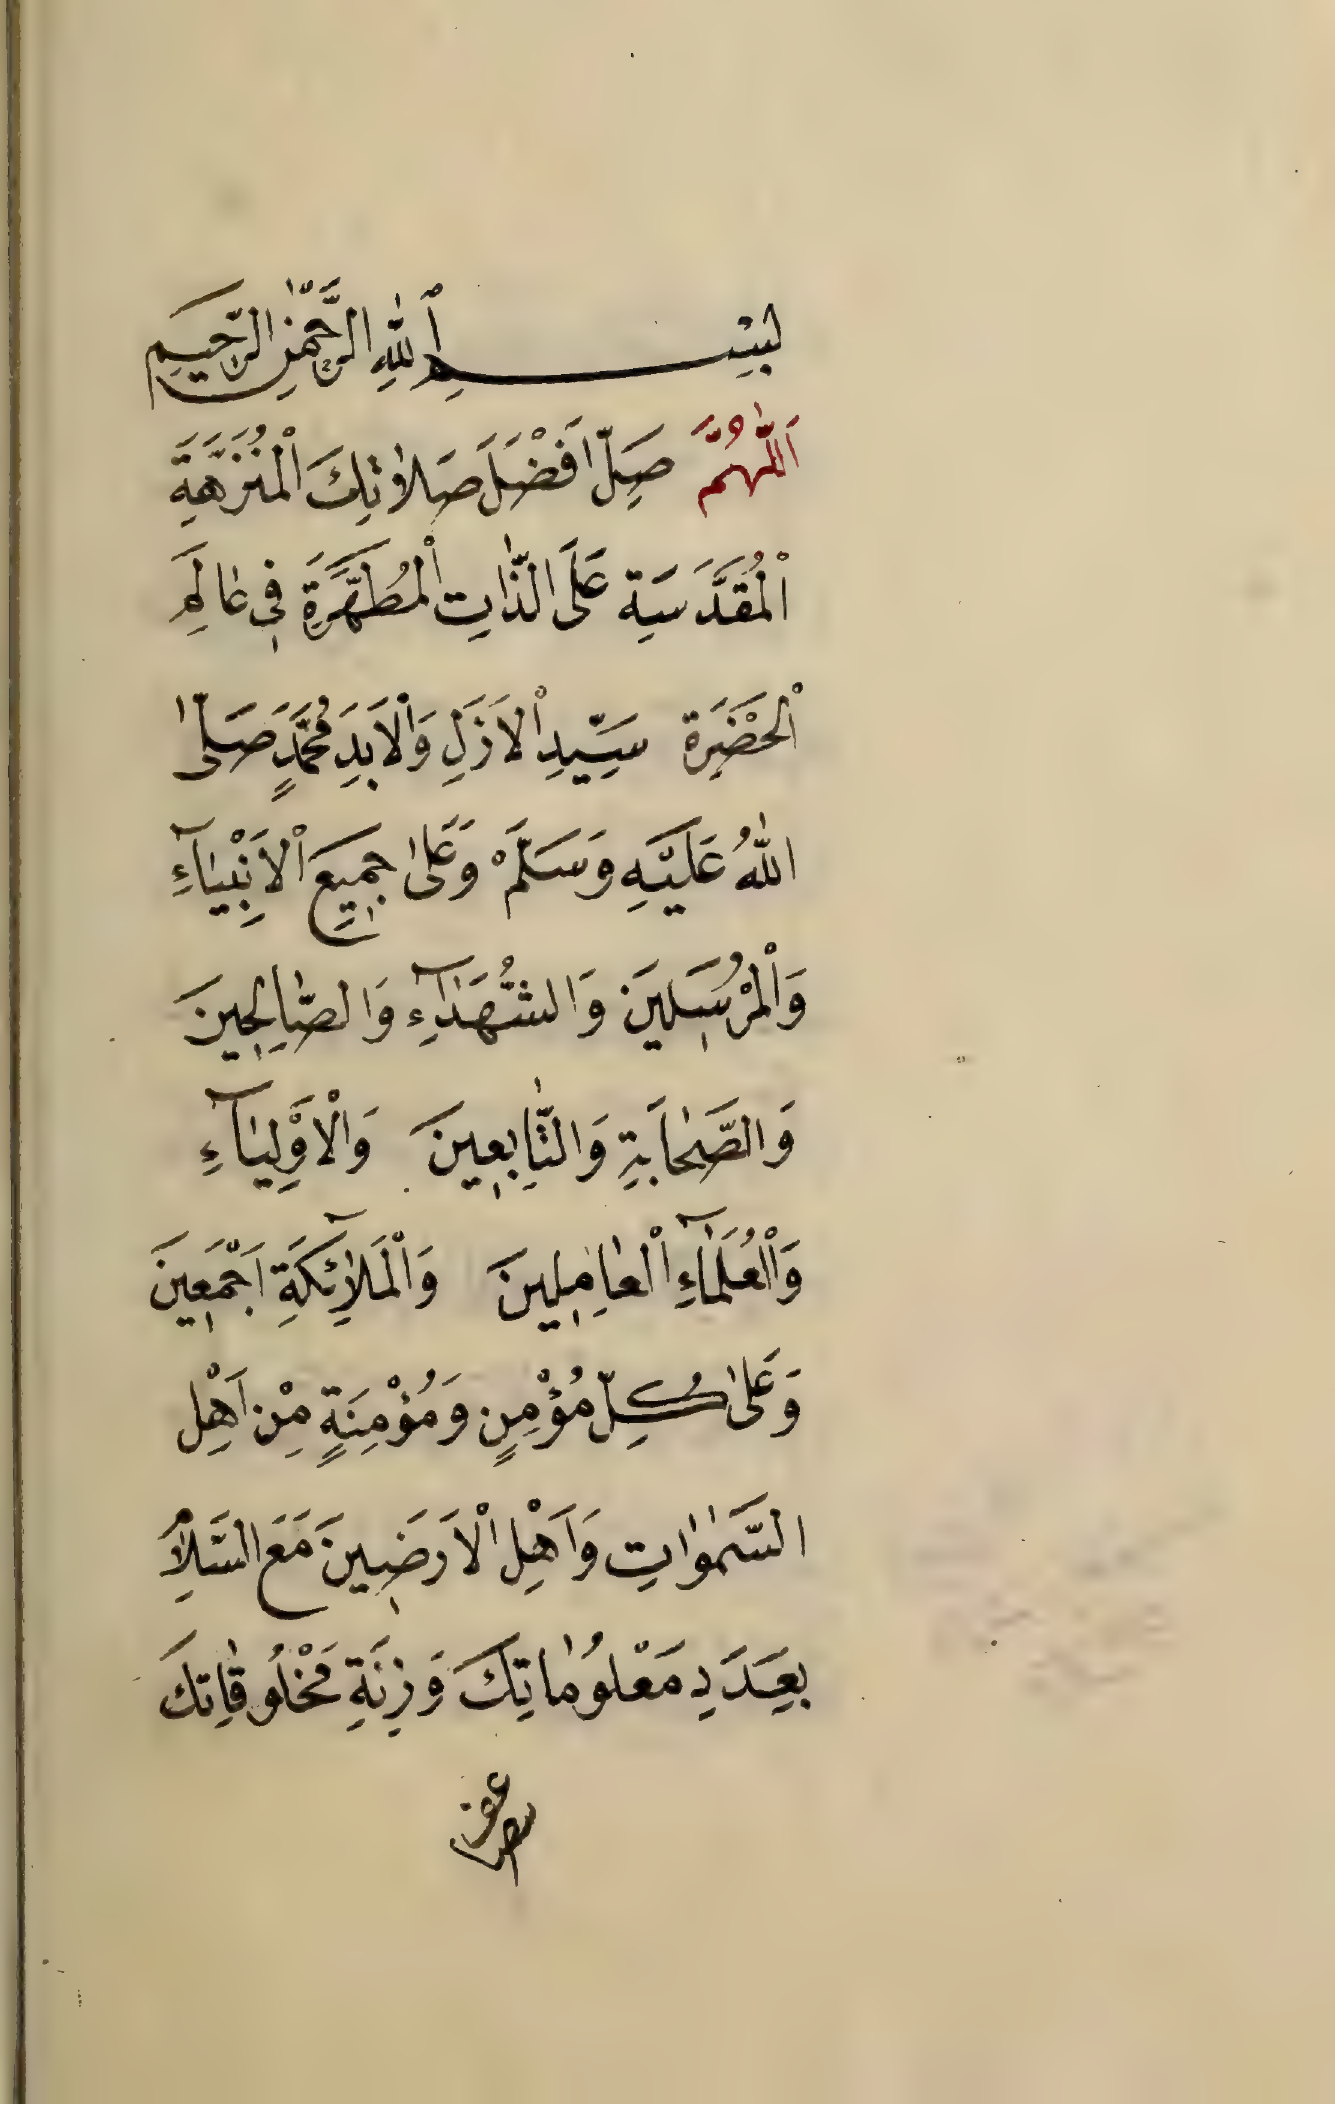 بِسْمِ ٱللّٰهِ الرَّحْمٰنِ الرَّحِيمِ
اَللّٰهُمَّ صَلِّ اَفْضَلَ صَلَاٰتِكَ الْمُنَزَّهَةِ
الْمُقَدَّسَةِ عَلَى الذَّاتِ الْمُطَهَّرَةِ فِى عَالَمِ
الْحَضْرَةِ سَيِّدِ الْاَزَلِ وَالْاَبَدِ مُحَمَّدٍ صَلَّى
اللّٰهُ عَلَيْهِ وَسَلَّمَ وَعَلٰى جَمِيعِ الْاَنْبِيَآءِ
وَالْمُرْسَلِينَ وَالشُّهَدَآءِ وَالصَّالِحِينَ
وَالصَّحَابَةِ وَالتَّابِعِينَ وَالْاَوْلِيَآءِ
وَالْعُلَمَآءِ الْعَامِلِينَ وَالْمَلَآئِكَةِ اَجْمَعِينَ
وَعَلٰى كُلِّ مُؤْمِنٍ وَمُؤْمِنَةٍ مِنْ اَهْلِ
السَّمٰوَاتِ وَاَهْلِ الْاَرَضِينَ مَعَ السَّلَامِ
بِعَدَدِ مَعْلُومَاتِكَ وَزِنَةِ مَخْلُوقَاتِكَ